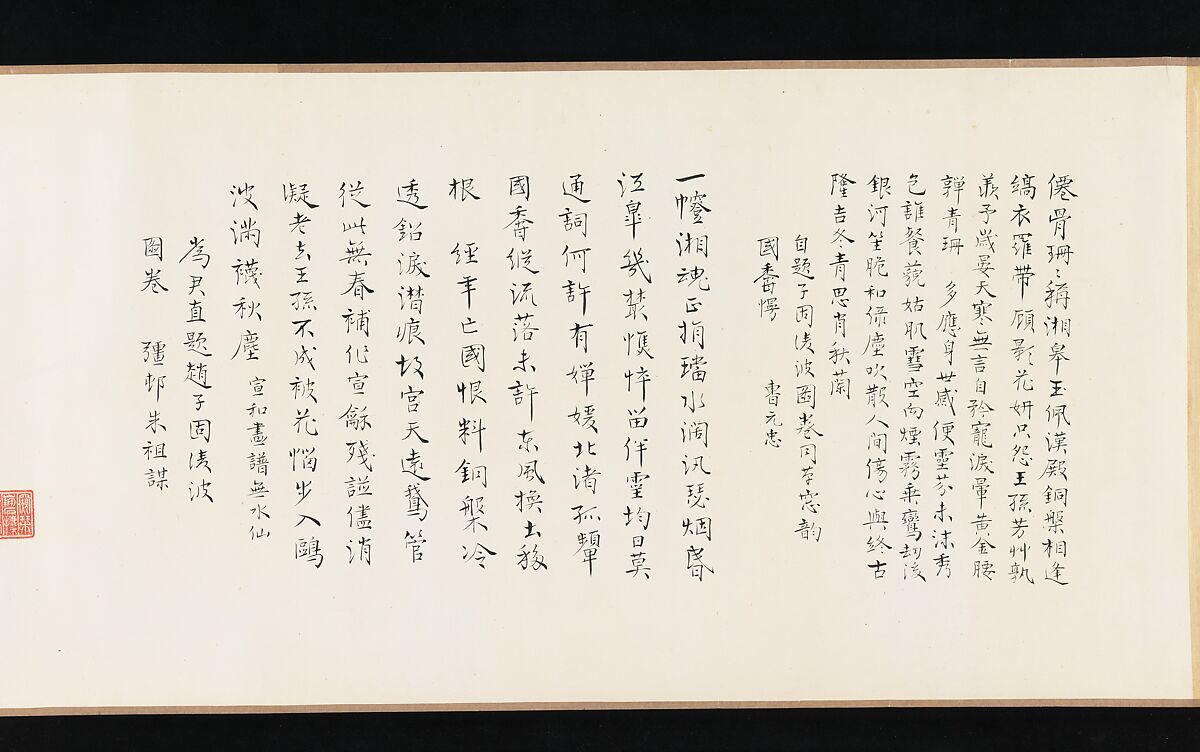 僊骨珊〻稱湘皋玉佩漢殿銅槃相逢
縞衣羅帶顧影花妍只怨王孫芳艸孰
羨予歲晏天寒無言自矜寵淚暈黃金腰
嚲青珊　多應身世感便靈芬未沬秀
色誰餐藐姑肌雪空向煙霧乘鸞劫後
銀河笙脆和綠塵吹散人間傷心與終古
隆吉冬青思肖秋蘭
自題子固淩波圖卷同草窓韵
國香慢　　　魯元忠
一㡧湘魂正捐璫水濶汎瑟烟昬
江皋幾叢憔悴畱伴靈均日莫
通詞何許有嬋媛北渚孤顰
國香縱流落未許東風換土移
根　經年亡國恨料銅槃冷
透鉛淚潛痕故宮天遠鵞管
從此無春補作宣龢殘譜儘消
凝老去王孫不成被花惱步入鷗
波滿襪秋塵　宣和畫譜無水仙
為君直題趙子固淩波
圖卷　彊邨朱祖謀